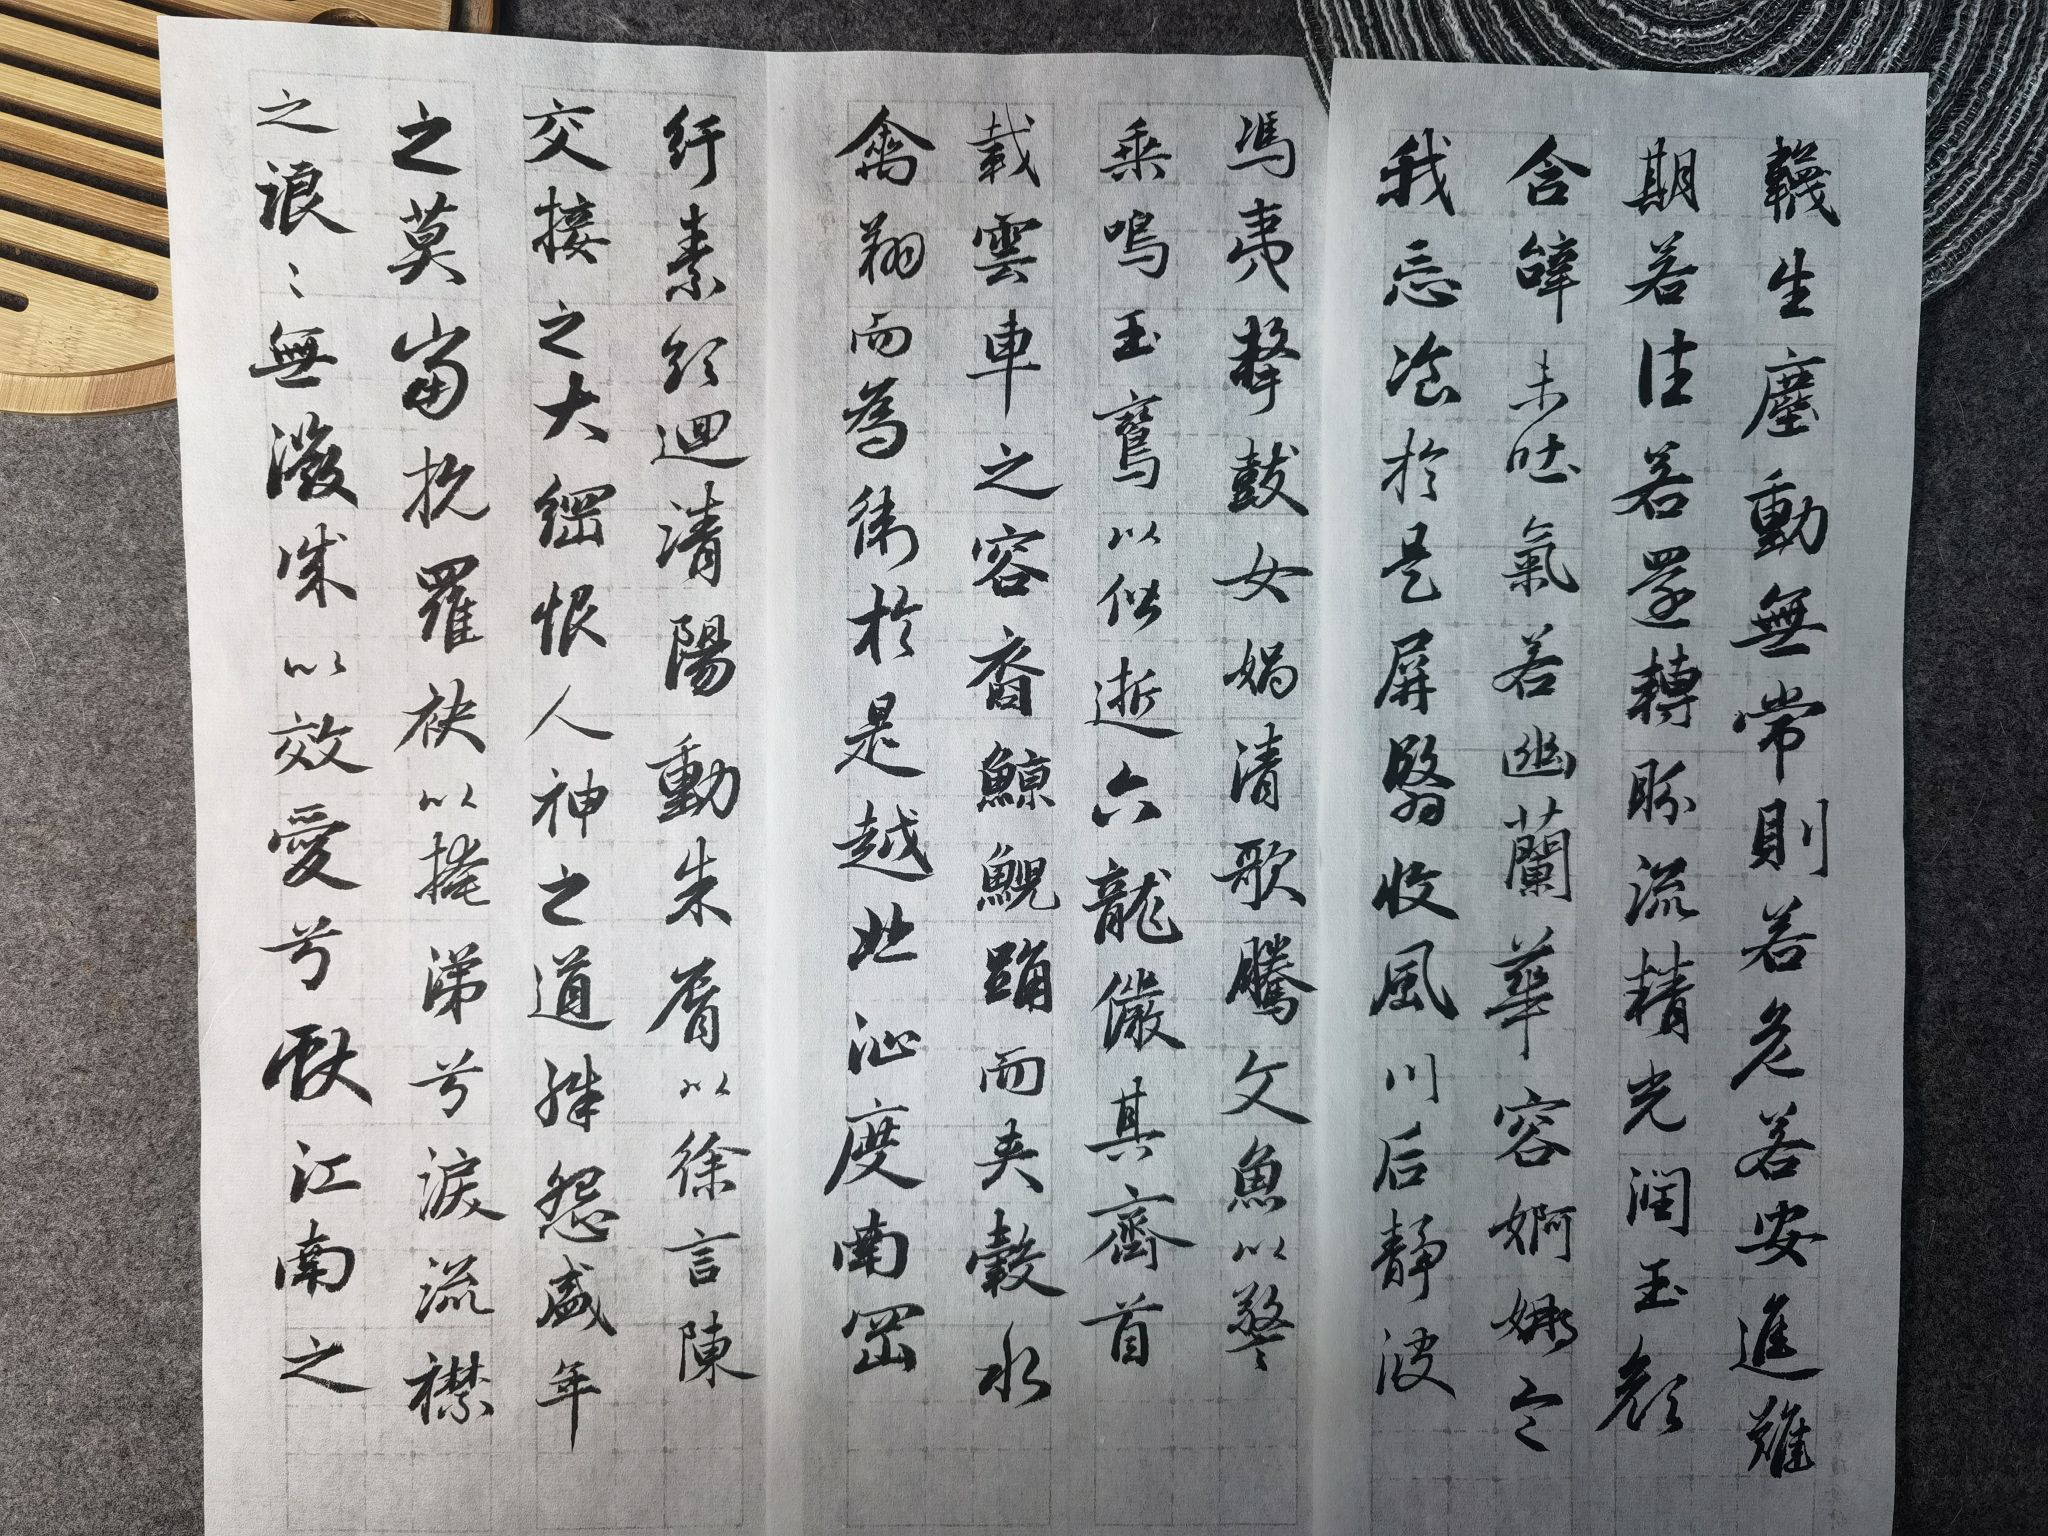 韈生塵動無常則若危若安進難
期若往若還轉盼流精光润玉顏
含辭未吐氣若幽蘭華容婀娜令
我忘飡於是屏翳收風川后靜波
馮夷擊鼓女媧清歌騰文魚以警
乘嗚玉鸞以偕逝六龍儼其齊首
載雲車之容裔鯨鯢踊而夾轂水
禽翔而為衛於是越北沚度南岡
紆素領迴清陽動朱脣以徐言陳
交接之大綱恨人神之道殊怨盛年
之莫當抗羅袂以掩涕兮淚流襟
之浪〻無微誠以效愛兮獻江南之